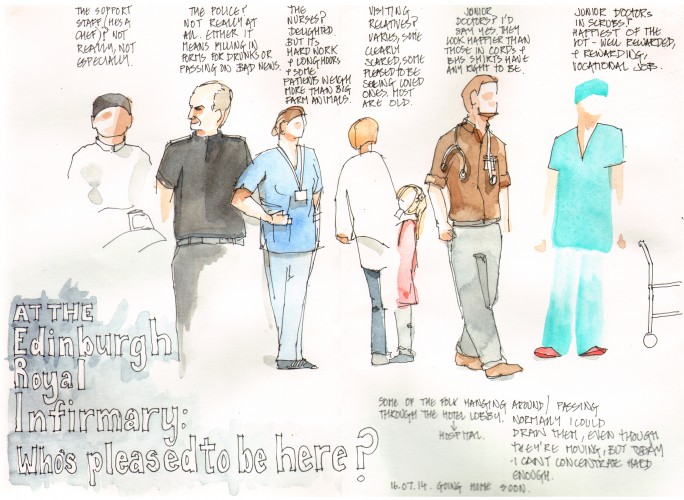 THE SUPPORT
STAFF (HES A
CHEF)? NOT
REALLY, NOT
ESPECIALLY.
THE POLICE?
NOT REALLY AT
ALL. EITHER IT
MEANS FILLING IN
FORMS FOR DRUNKS OR
PASSING ON BAD NEWS.
THE
NURSES?
DELIGHTED.
BUT ITS
HARD WORK
& LONG HOURS
& SOME
PATIENTS WEIGH
MORE THAN BIG
FARM ANIMALS.
VISITING
RELATIVES?
VARIES, SOME
CLEARLY
SCARED, SOME
PLEASED TO BE
SEEING LOVED
ONES. MOST
ARE OLD.
JUNIOR
DOCTORS? I'D
SAY YES. THEY
LOOK HAPPIER THAN
THOSE IN CORDS &
BHS SHIRTS HAVE
ANY RIGHT TO BE.
JUNIOR DOCTORS
IN SCRUBS?
HAPPIEST OF THE
LOT - WELL REWARDED,
& REWARDING,
VOCATIONAL JOB.
AT THE
Edinburgh
Royal
Infirmary:
Who's pleased to be here?
SOME OF THE FOLK HANGING AROUND / PASSING
THROUGH THE HOTEL LOBBY.
HOSPITAL.
NORMALLY I COULD
DRAW THEM, EVEN THOUGH
THEY'RE MOVING, BUT TODAY
I CAN'T CONCENTRATE HARD
ENOUGH.
16.07.14. GOING HOME SOON.